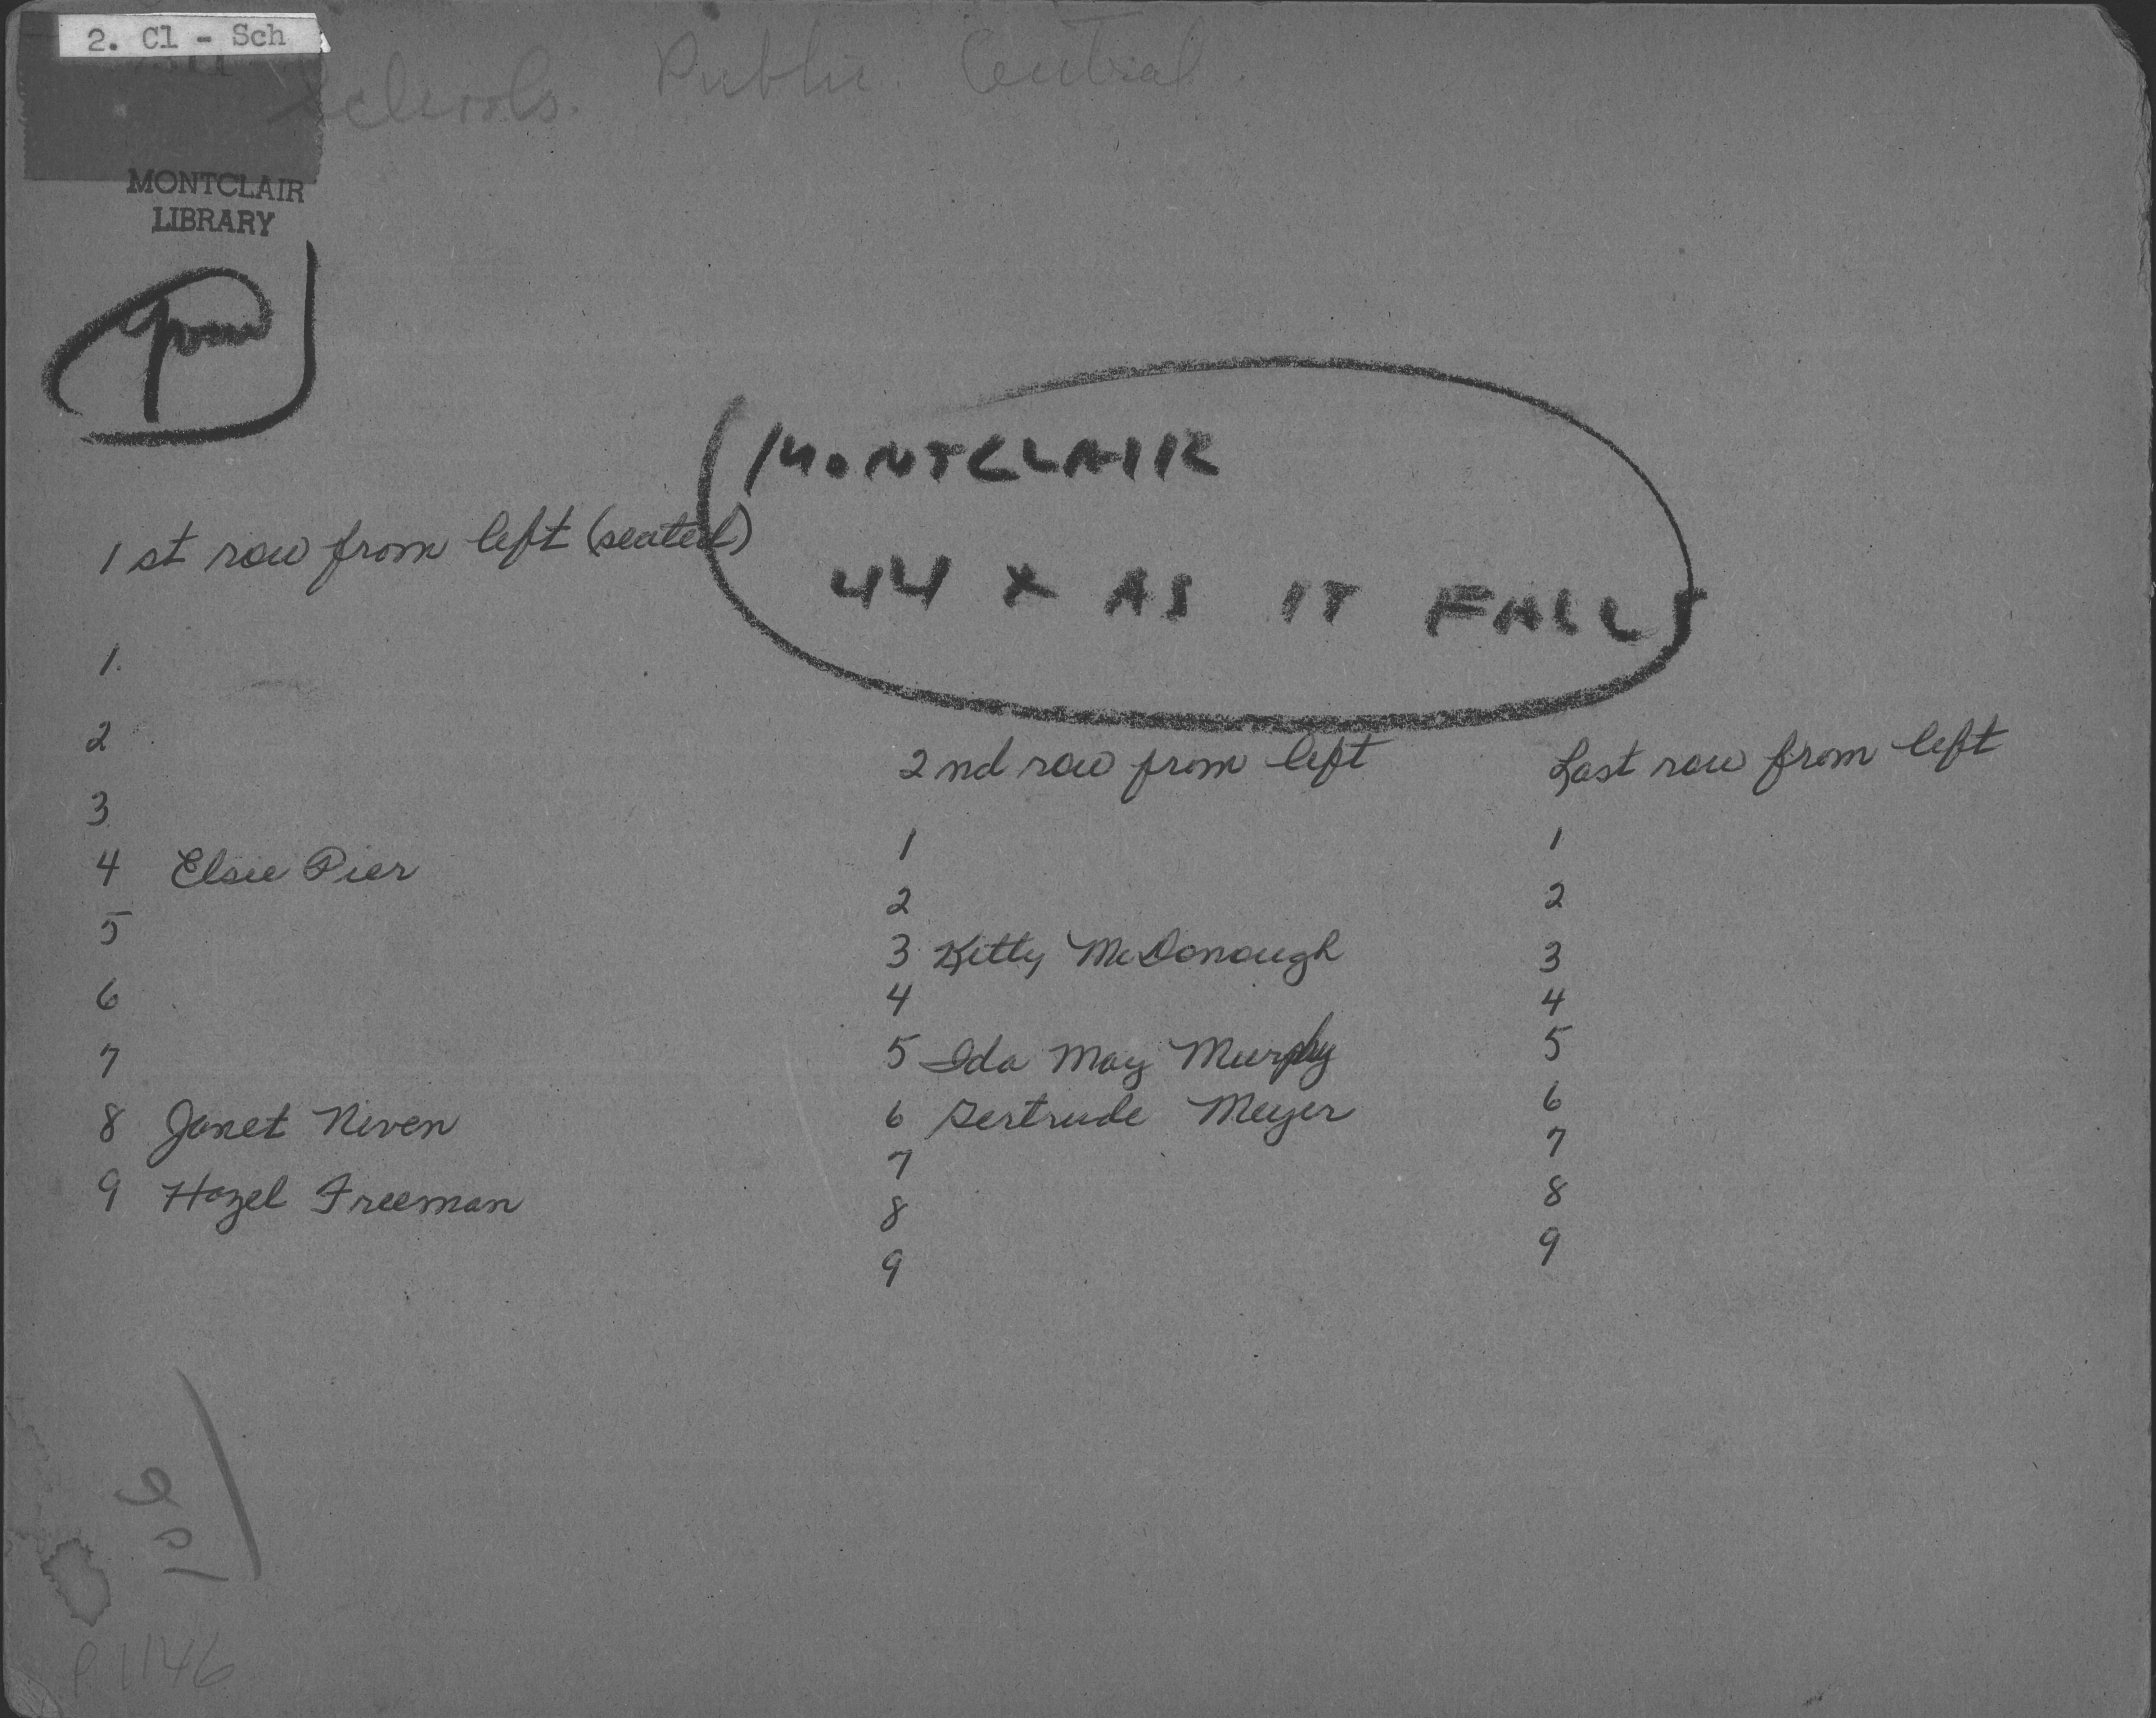 2. Cl - Sch
Schools. Public. Central.
MONTCLAIR
LIBRARY
MONTCLAIR
44 X AS IT FALLS
1st row from left (seated)
1.
2
3
4 Elsie Pier
5
6
7
8 Janet Niven
9 Hazel Freeman
2nd row from left
1
2
3 Kitty McDonough
4
5 Ida May Murphy
6 Gertrude Meyer
7
8
9
Last row from left
1
2
3
4
5
6
7
8
9
P1146